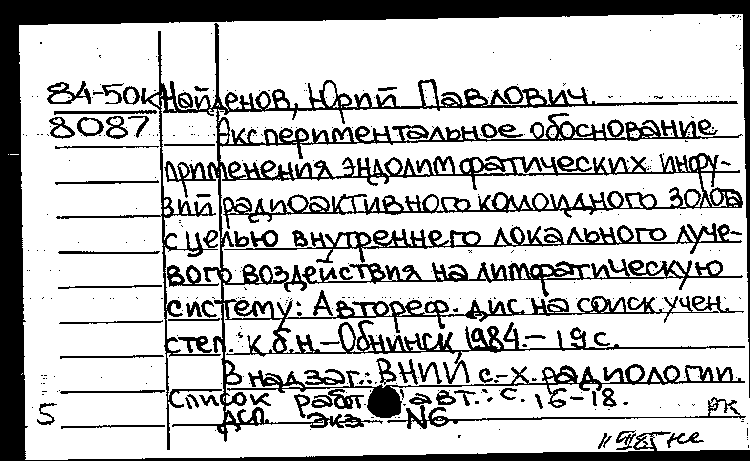 84-50к Найденов, Юрий Павлович.
8087 Экспериментальное обоснование
применения эндолимфатических инфу-
зий радиоактивного коллоидного золота
с целью внутреннего локального луче-
вого воздействия на лимфатическую
систему: Автореф. дис. на соиск. учен.
степ. к.б.н. - Обнинск, 1984. - 19 с.
В надзаг.: ВНИИ с.-х. радиологии.
Список работ авт.: с. 16-18.
5 ДСП. экз. N6. РК